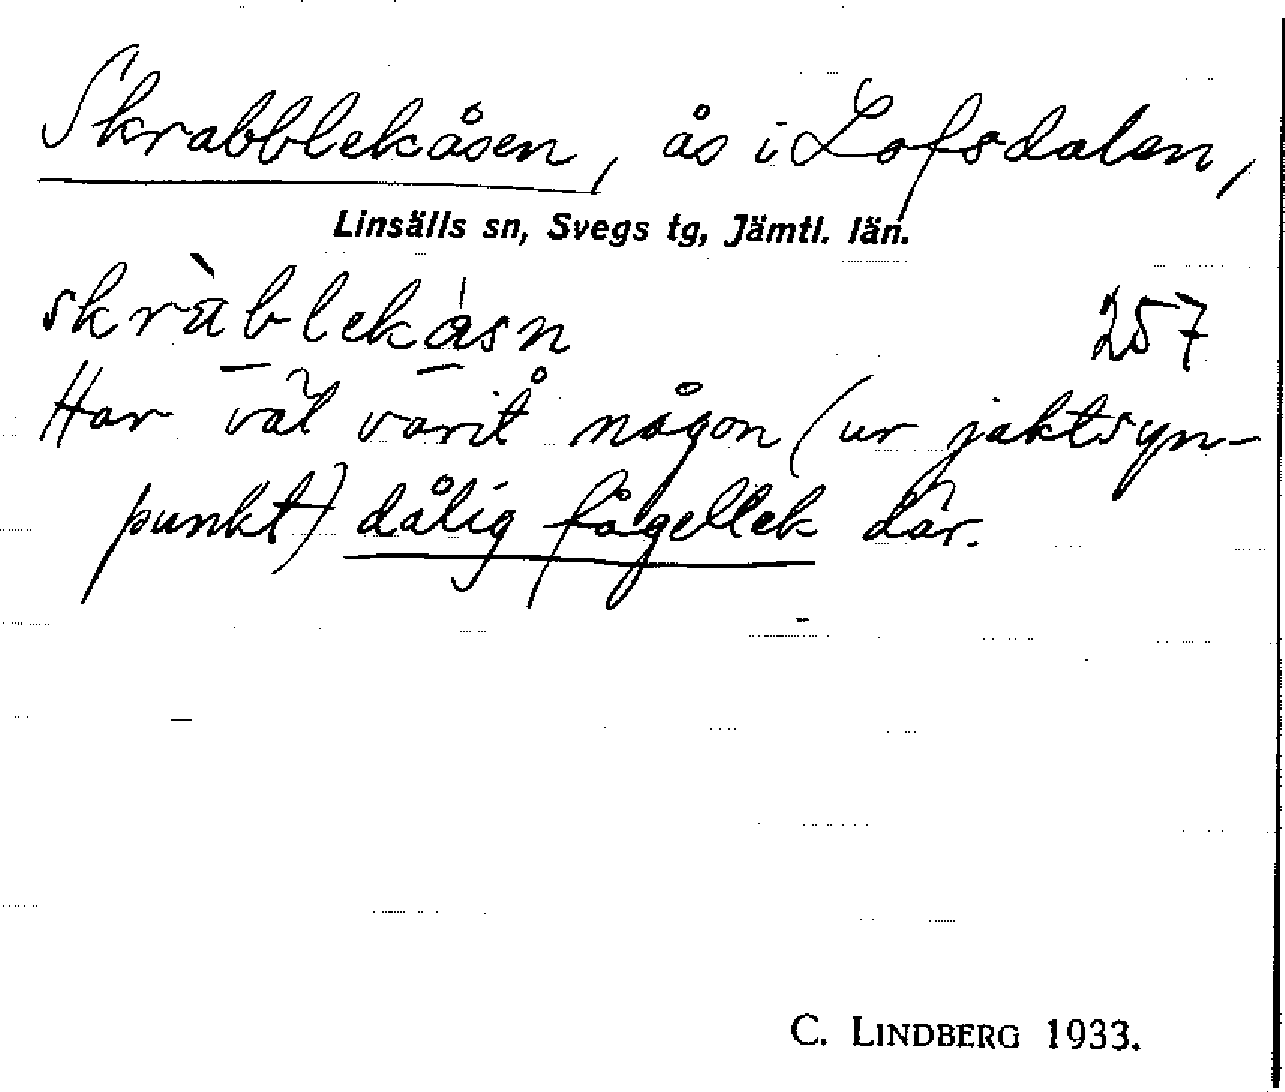 Skrabblekåsen, ås i Lofsdalen,
Linsälls sn, Svegs tg, Jämtl. län.
skràblekásn 257
Har väl varit någon (ur jaktsyn-
punkt) dålig fågellek där.
C. LINDBERG 1933.